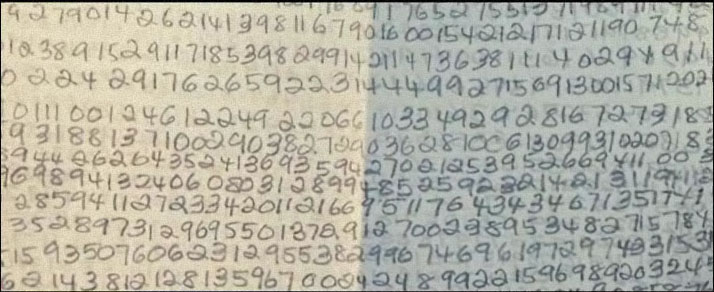 9279014262141398116790160015421217112119074８
1238915291171853982991421147363811140294911
0224291762659223144499271569130015711202
01110012461224922066103349292816727318
931881371002903827290362810061309931020718
9442626435241369359427021253952669411003
9698941324060803128994852592321421311941
28594112723342011216695117643434671351
352897312969550137291270023895348271578４
159350760623129553829967469619729743315３
62143812128135967000424899221596989203245